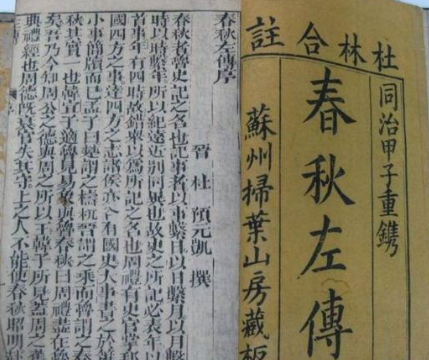 杜林合註
同治甲子重鐫
春秋左傳
蘇州掃葉山房藏板
春秋左傳序
晉 杜 預元凱 撰
春秋者魯史記之名也記事者以事繫日以日繫月以月繫
時以時繫年所以紀遠近別同異也故史之所記必表年以
首事年有四時故錯舉以爲所記之名也周禮有史官掌邦
國四方之事達四方之志諸侯亦各有國史大事書之於
小事簡牘而已孟子曰楚謂之檮杌晉謂之乘而魯謂之春
秋其實一也韓宣子適魯見易象與魯春秋曰周禮盡在魯
矣吾乃今知周公之德與周之所以王韓子所見蓋周之舊
典禮經也周德既衰官失其守上之人不能使春秋昭明